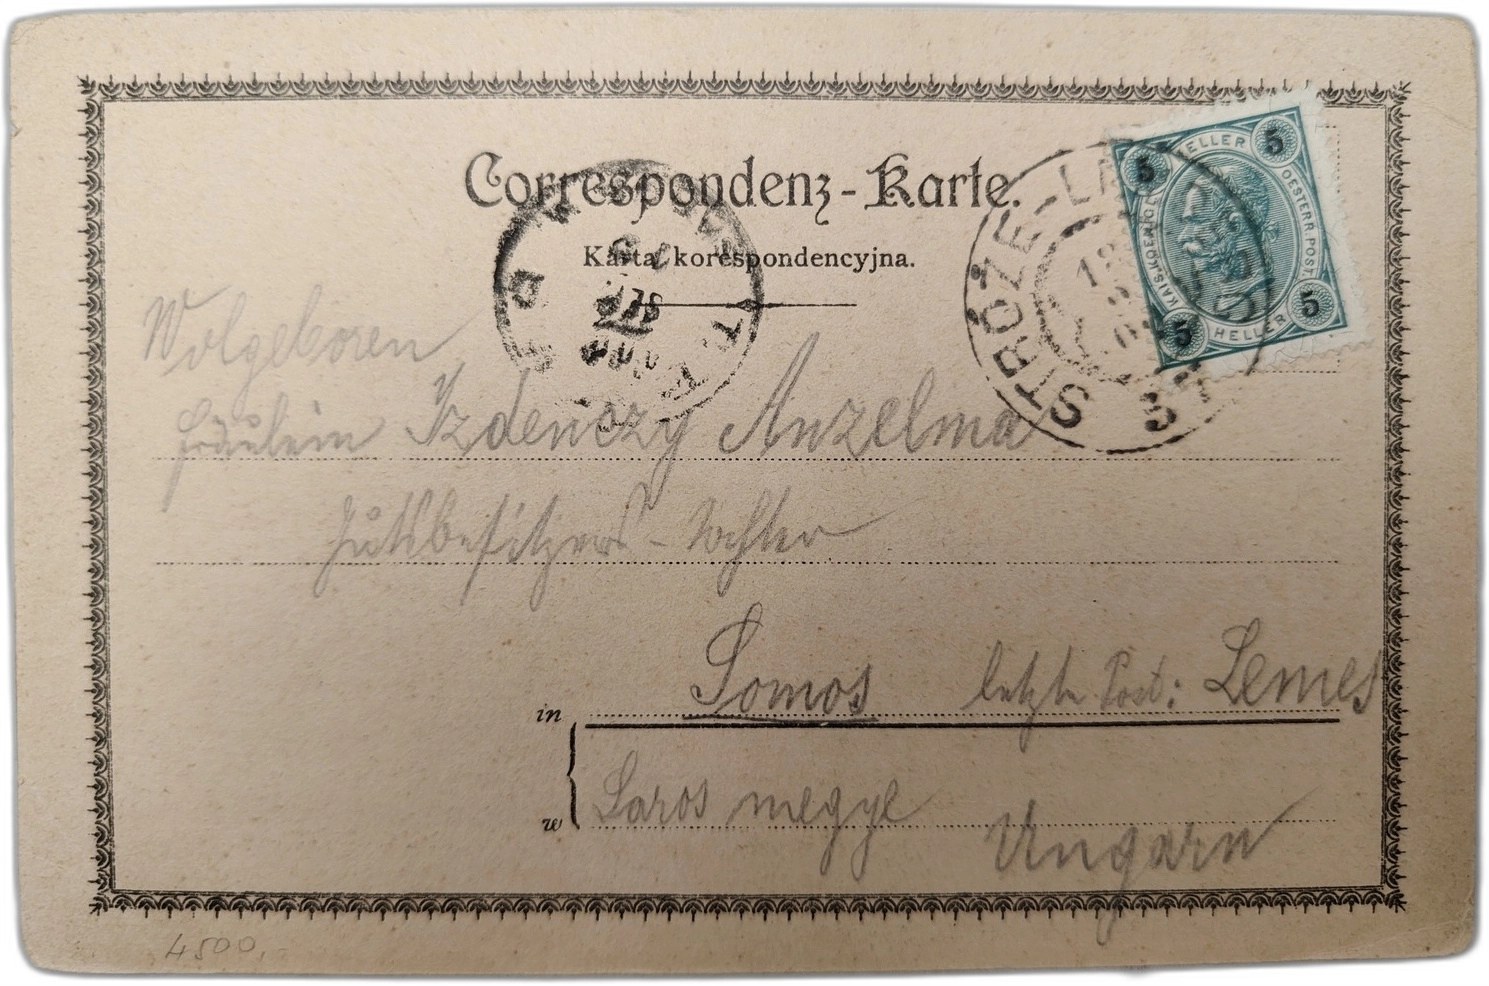 Correspondenz-Karte.
Karta korespondencyjna.
5 HELLER 5
KAIS. KOENIGL. OESTERR. POST.
5 HELLER 5
STRÓŻE-LA
Wolgeboren
Fräulein Izdenczy Anzelma
Gutsbesitzers-Tochter
in Somos letzte Post: Lemes
w Saros megye
Ungarn
4500,-